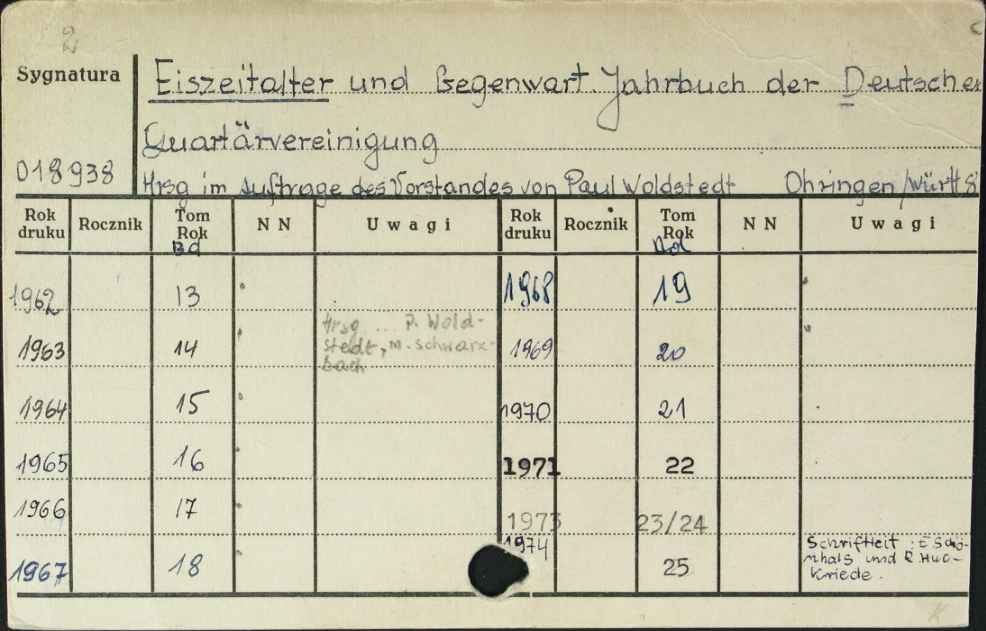 2
Sygnatura
Eiszeitalter und Gegenwart. Jahrbuch der Deutschen
Quartärvereinigung
018938
Hrsg im Auftrage des Vorstandes von Paul Woldstedt Ohringen/Württ
Rok druku Rocznik Tom Rok Bd N N Uwagi Rok druku Rocznik Tom Rok Bd N N Uwagi
1962 13 1968 19
1963 14 Hrsg ... P. Wold-
stedt, M. Schwarz-
bach 1969 20
1964 15 1970 21
1965 16 1971 22
1966 17 1973 23/24
1967 18 1974 25 Schriftleit : E Schö-
nhals und R. Huc-
Kriede.